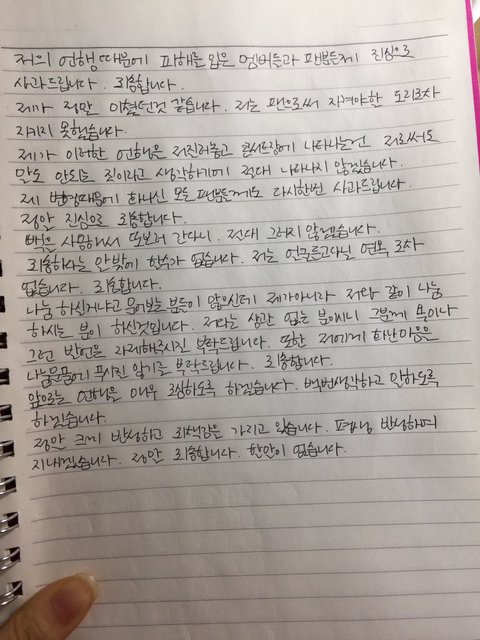 저의 언행 때문에 피해를 입은 멤버들과 팬분들께 진심으로
사과드립니다. 죄송합니다.
제가 정말 미쳤던것 같습니다. 저는 팬으로써 지켜야할 도리조차
지키지 못했습니다.
제가 이러한 언행을 저질러놓고 콘서트장에 나타나는건 저로써도
말도 안되는 짓이라고 생각하기에 절대 나타나지 않겠습니다.
제 때문에 화나신 모든 팬분들께도 다시한번 사과드립니다.
정말 진심으로 죄송합니다.
빽을 사용해서 또보러 간다니. 절대 그러지 않겠습니다.
죄송하다는 말밖에 할수가 없습니다. 저는 얼굴들고다닐 면목 조차
없습니다. 죄송합니다.
나눔 하신거냐고 물어보는 분들이 많으신데 제가아니라 저랑 같이 나눔
하시는 분이 하신것입니다. 저와는 상관 없는 분이시니 그분께 욕이나
그런 발언은 자제해주시길 부탁드립니다. 또한 저에게 화난마음은
나눔물품에 푸시진 않기를 부탁드립니다. 죄송합니다.
앞으로는 언행은 매우 조심하도록 하겠습니다. 백번생각하고 말하도록
하겠습니다.
정말 크게 반성하고 죄책감을 가지고 있습니다. 평생 반성하며
지내겠습니다. 정말 죄송합니다. 할말이 없습니다.